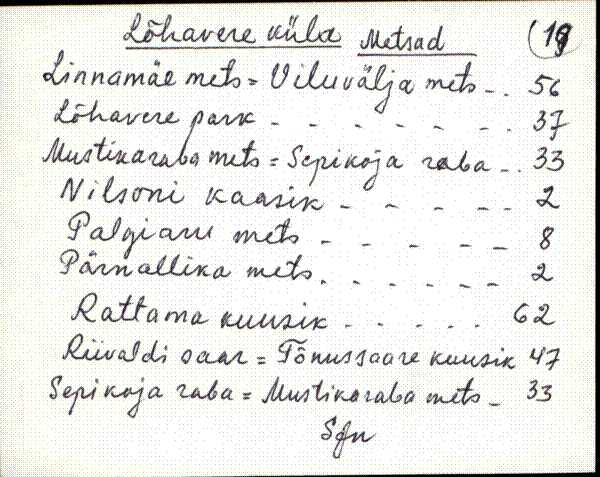 Lõhavere küla Metsad (19
Linnamäe mets = Viluvälja mets - . 56
Lõhavere park - - - - - - . 37
Mustikaraba mets = Sepikoja raba - . 33
Nilsoni kaasik - - - - - 2
Palgiaru mets - - - - - 8
Pärnallika mets . - - - - - 2
Rattama kuusik - . . . . . 62
Riivaldi saar = Tõnussaare kuusik 47
Sepikoja raba = Mustikaraba mets - 33